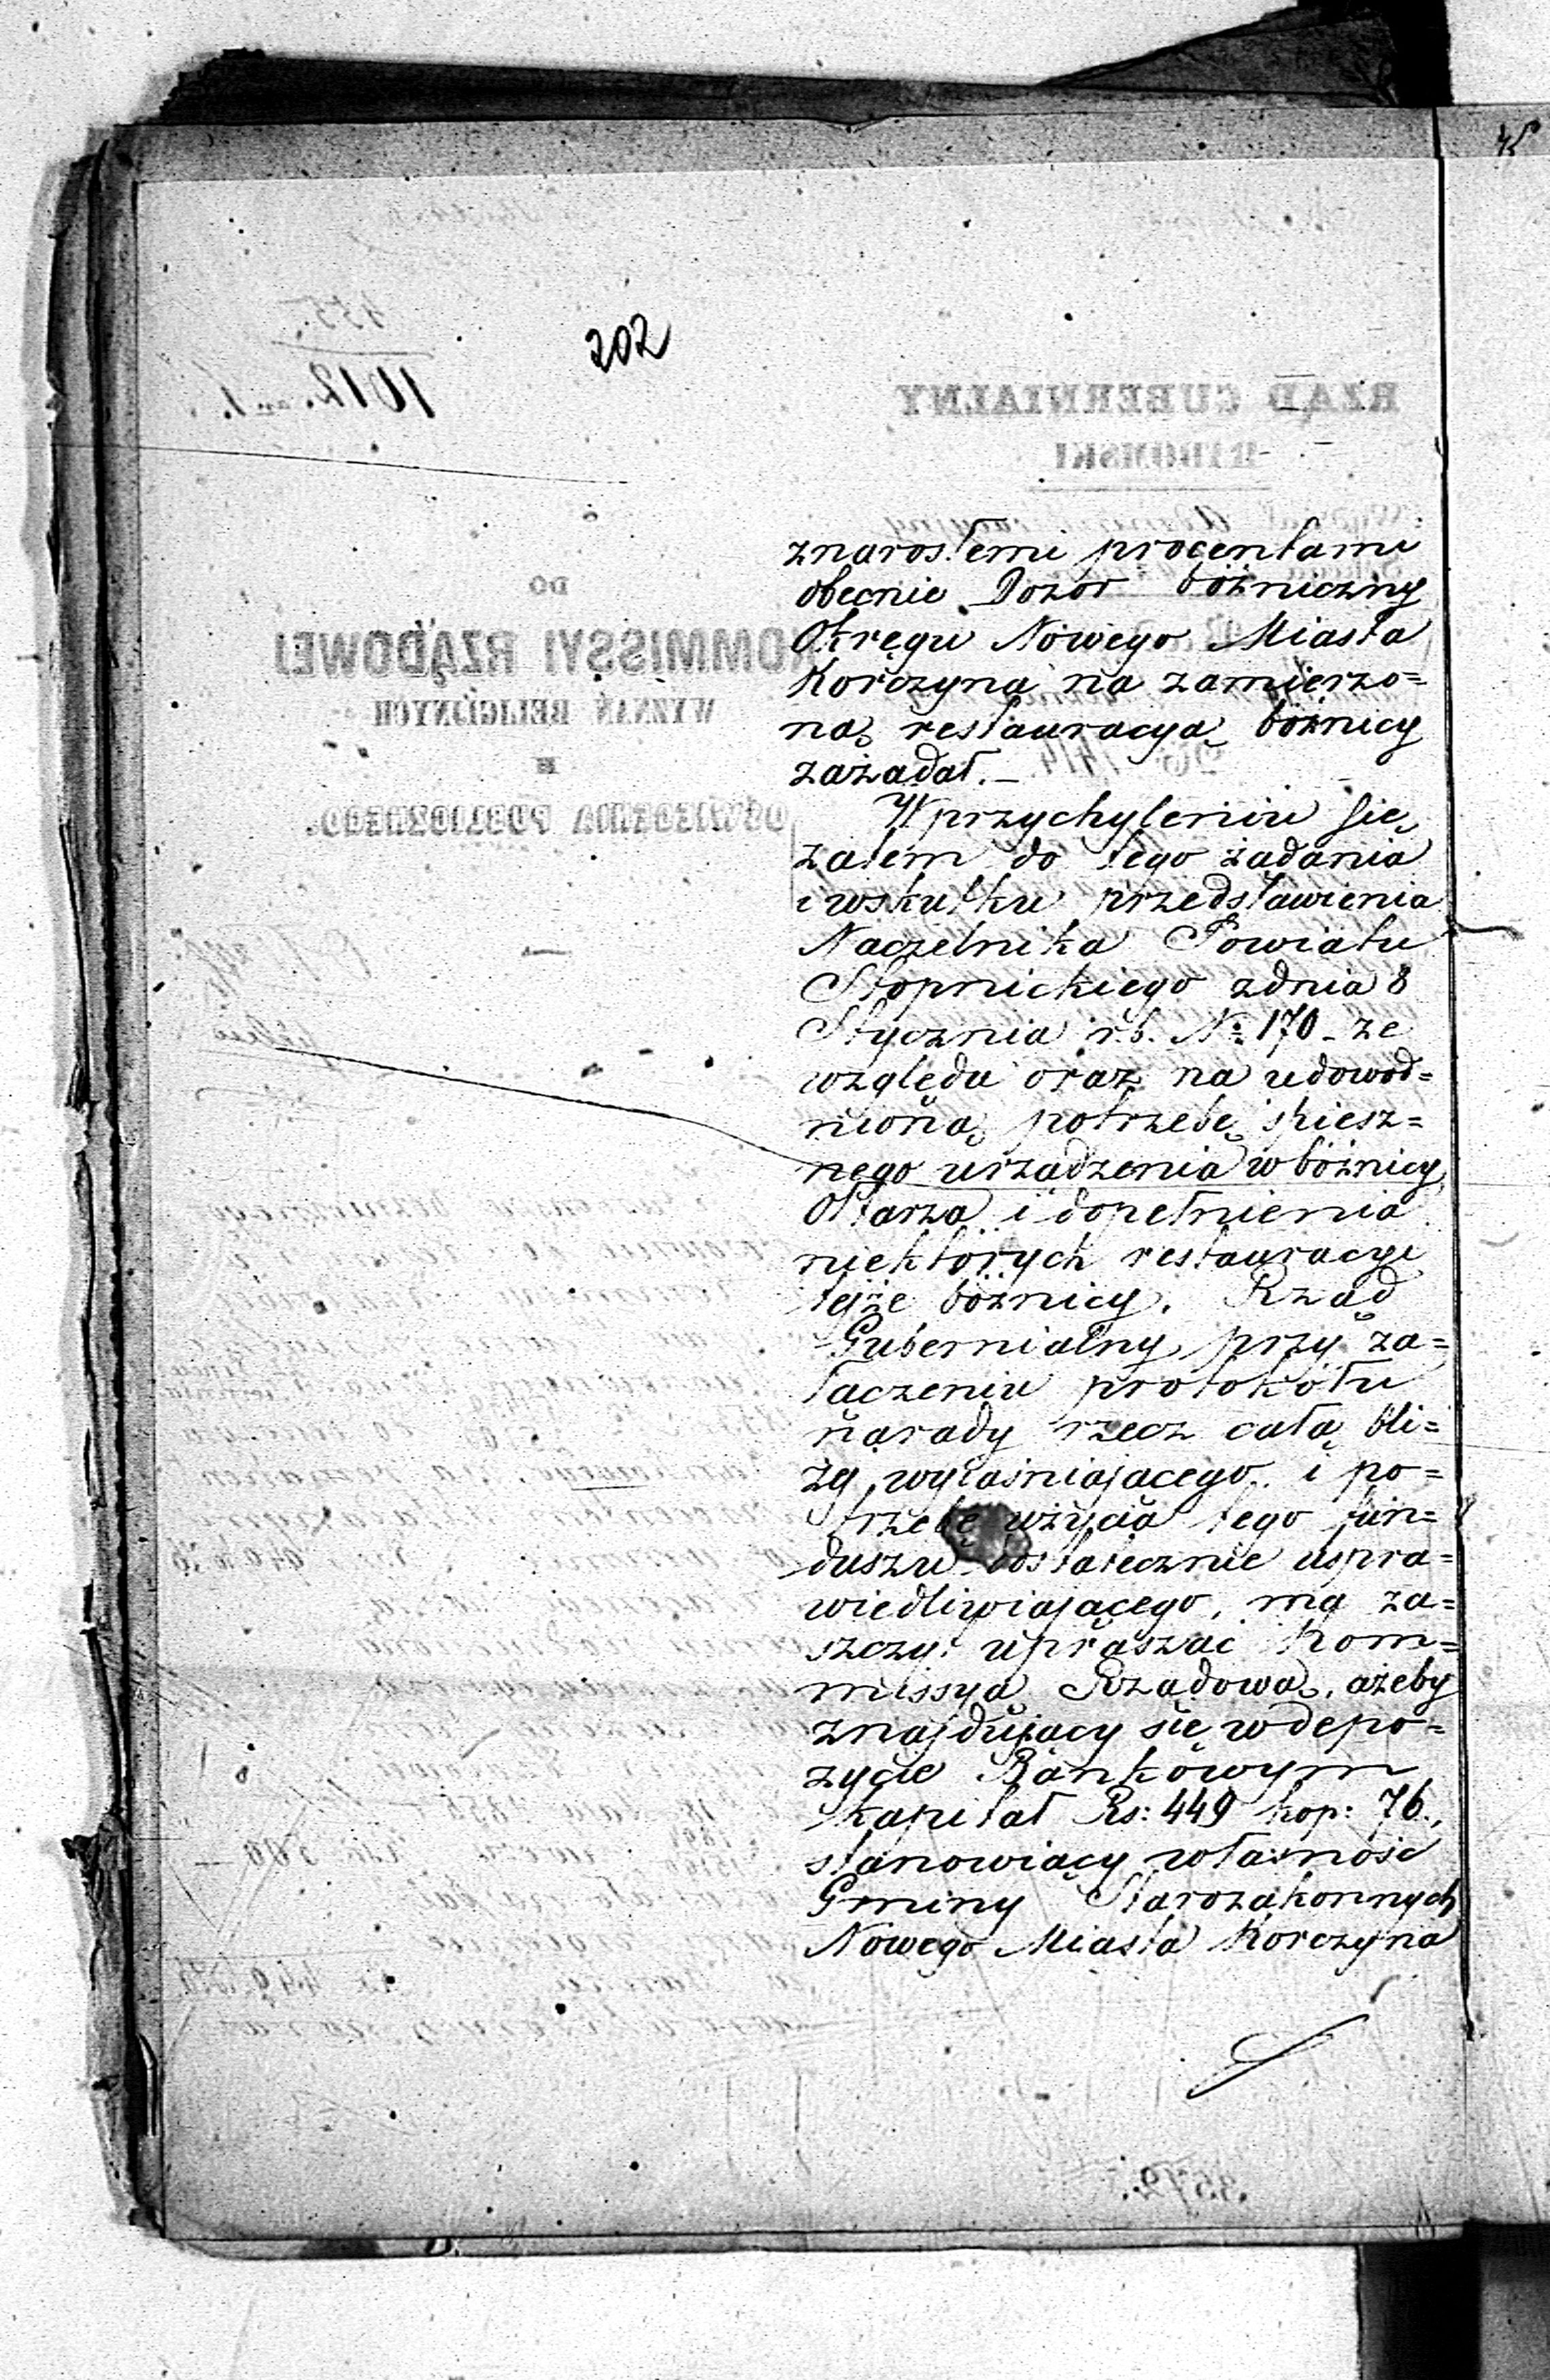 202
znarosłemi procentami
obecnie Dozór bóżniczny
Okręgu Nowego Miasta
Korczyna na zamierzo=
ną restauracyą bóżnicy
zażądał.—
W przychyleniu się
zatem do tego żądania
i wskutku przedstawienia
Naczelnika Powiatu
Stopnickiego zdnia 8
Stycznia r.b. № 170 - ze
względu oraz na udowod=
nioną potrzebę spiesz=
nego urządzenia w bóżnicy
Ołtarza i dopełnienia
niektórych restauracyi
tejże bóżnicy. Rząd
Gubernialny przy za=
łączeniu protokółu
narady rzecz całą bli=
żej wyjaśniającego i po=
trzebę użycia tego fun=
duszu dostatecznie uspra=
wiedliwiającego, ma za=
szczyt upraszać Kom=
missyą Rządową, ażeby
znajdujący się w depo=
zycie Bankowym
kapitał Rs: 449 kop: 76.,
stanowiący własność
Gminy Starozakonnych
Nowego Miasta Korczyna